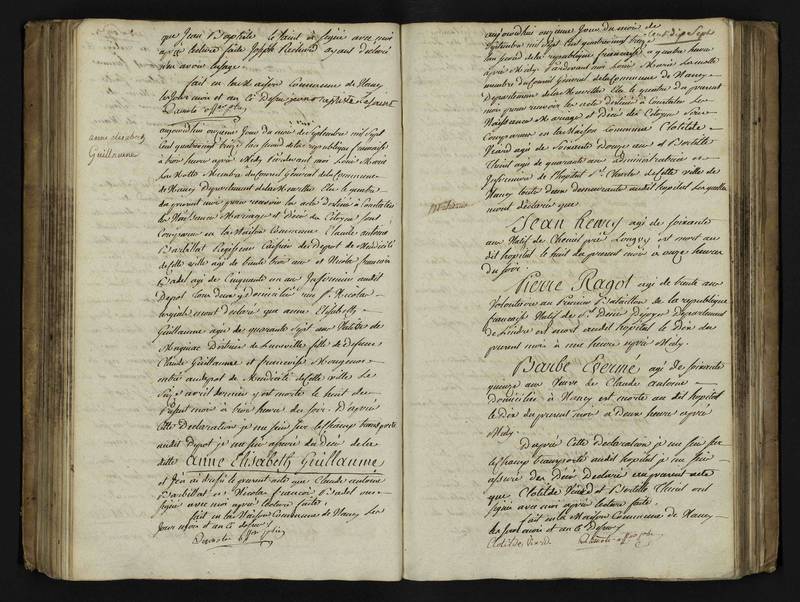 que Jean Baptiste le Saint a signé avec moi
après lecture faite Joseph Richard ayant déclaré
n'en avoir l'usage.
fait en la Maison Commune de Nancy
les Jour mois et an ci Dessus jean baptiste Lesaint
anne elisabeth
Guillaume
aujourd'huy onzieme Jour du mois de Septembre mil Sept
Cent quatrevingt treize l'an second de la république françoise
à trois heures après Midy Pardevant moi Louis Marie
La Motte Membre du Conseil Général de la Commune
de Nancy Departement de la Meurthe Elu le quatre
du present mois pour recevoir les acte destiné à Constater
les Naissance Mariage et Décès des Citoyens Sont
Comparus en la Maison Commune Claude antoine
Barbillat Regisseur Caissier du Depot de Mendicité
de cette ville agé de trente trois ans et Nicolas françois
Badel agé de Cinquante un ans Infirmier audit
Depot tous deux y domicilié rue St. Nicolas
lesquels m'ont declaré que anne Elisabeth
Guillaume agée de quarante Sept ans Native de
Magniac District de Luneville fille de Defunt
Claude Guillaume et françoise Mougenot
entrée audepot de Mendicité de cette ville Le
Six avril dernier y est morte le huit du
present mois à trois heures du soir. D'après
Cette Déclaration je me suis sur le champ transporté
audit Depot je me suis assuré du Décès de la
ditte anne Elisabeth Guillaume
et J'en ai dressé le present acte que Claude antoine
Barbillat et Nicolas françois Badel ont
signé avec moi après lecture faite.
fait en la Maison Commune de Nancy Les
Jour mois et an ci dessus
Cent dix Sept
aujourd'huy onzieme Jour du mois de
Septembre mil Sept Cent quatrevingt treize
l'an second de la république françoise à quatre heures
après Midy Pardevant moi Louis Marie Lamotte
membre du Conseil Général de la Commune de Nancy
Departement de la Meurthe Elu le quatre du present
mois pour recevoir les acte destiné à Constater les
Naissance Mariage et Décès des Citoyens Sont
Comparus en la Maison Commune Clotilde
Viard agée de Soixante Douze ans et Bastille
Thirié agé de quarante ans administratrice et
Infirmier de l'hopital St. Charles de cette ville de
Nancy toutes Deux demeurante audit hopital lesquelles
m'ont déclaré que
Jean henry agé de soixante
ans Natif de Chenieres près Longwy est mort au
dit hopital le huit du present mois à onze heures
du soir.
Pierre Ragot agé de trente ans
Volontaire au Premier Bataillon de la republique
françoise Natif de St. Denis Departement
de Lindre est mort audit hopital Le Dix du
present mois à une heure après Midy.
Barbe Evermé agée de soixante
quinze ans Veuve de Claude antoine
Domiciliée à Nancy est morte au dit hopital
le Dix du present mois à Deux heures après
Midy.
D'après Cette Déclaration je me suis sur
le champ transporté audit hopital je me suis
assuré des Décès Déclaré au present acte
que Clotilde Viard et Bastille Thirié ont
signé avec moi après lecture faite.
fait en la Maison Commune de Nancy
les jour mois et an ci Dessus
Clotilde Viard